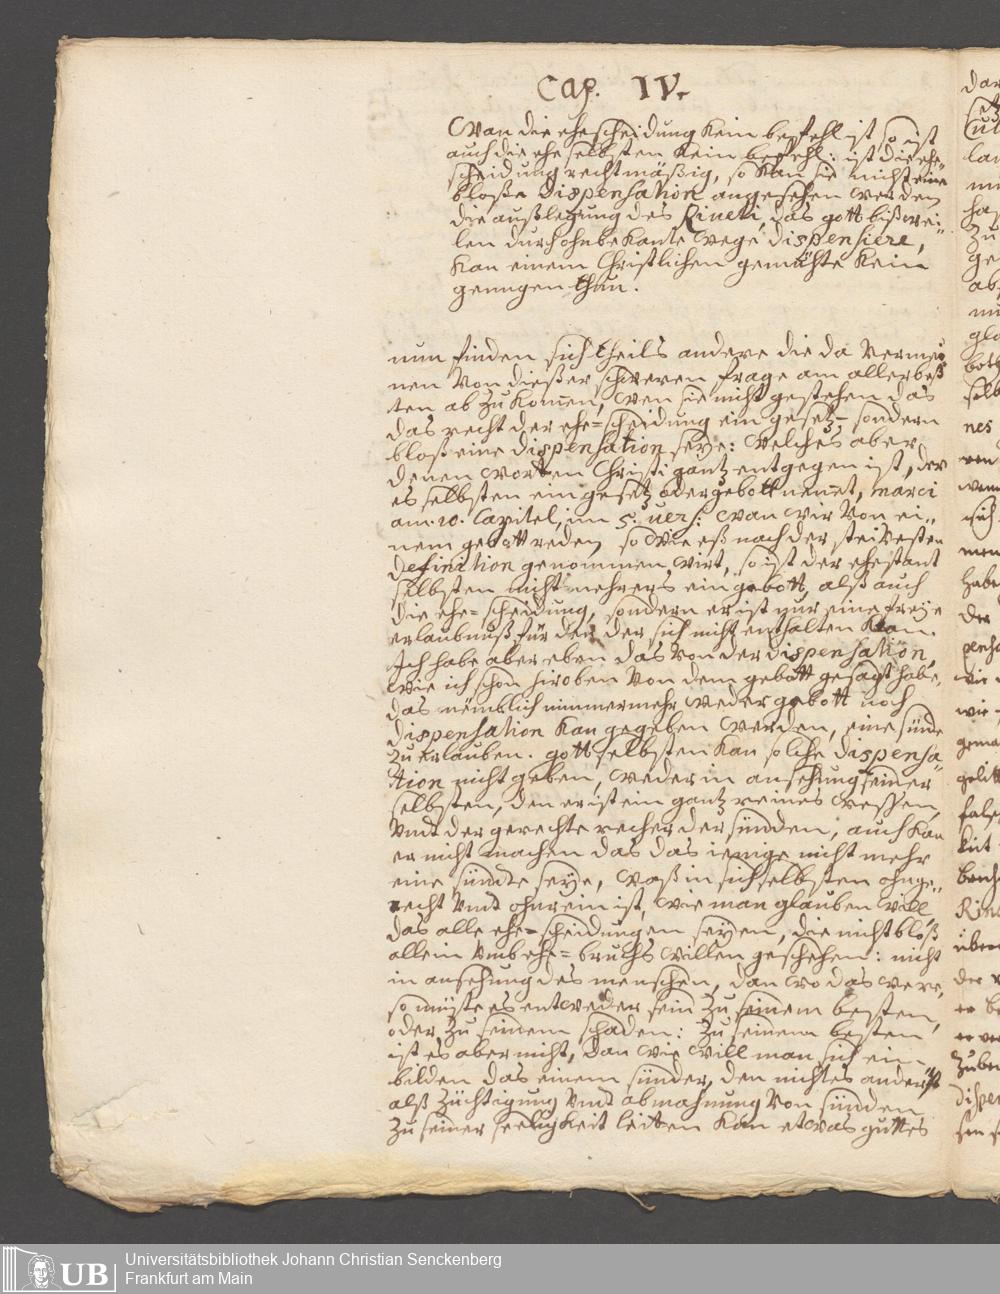 Cap. IV.
Wan die ehescheidung kein befehl ist so ist
auch die ehe selbsten kein befehl: ist die ehe-
scheidung rechtmäßig, so kan sie nicht eine
bloße dispensation angesehen werden
die außlegung des Riveti, das gott bißwei-
len durch ohnbekante wege dispensiere,
kan einem Christlichen gemühte kein
genugen thun.
nun finden sich theils andere die da vermei
nen von dießer schweren frage am allerbeß
ten ab zu kom̅en, wen sie nicht gestehen das
das recht der ehe=scheidung ein gesetz- sondern
bloß eine dispensation seye: welches aber
denen worten Christi gantz entgegen ist, der
es selbsten ein gesetz oder gebott nen̅et, marci
am. 10. Capitel, im 5. vers: wan wir von ei-
nem gebott reden so wie eß nach der
definition genommen wirt, so ist der ehestant
selbsten nicht mehrers ein gebott, alß auch
die ehe=scheidung, sondern er ist nur eine freye
erlaubnuß für den der sich nicht enthalten kan.
Ich habe aber eben das von der dispensation,
wie ich schon hroben von dem gebott gesagt habe,
das nemblich nimmermehr weder gebott noch
dispensation kan gegeben werden, eine sünde
zu erlauben. gott selbsten kan solche dispensa-
tion nicht geben, weder in ansehung seiner
selbsten, den er ist ein gantz reines wessen,
undt der gerechte recher der sünden, auch kan
er nicht machen das das ienige nicht mehr
eine sündte seye, waß in sich selbsten ohnge-
recht undt ohnrein ist, wie man glauben will
das alle ehe=scheidungen seyen, die nicht bloß
allein umb ehe=bruchs willen geschehen: nicht
in ansehung des menschen, dan wo das were,
so müste es entweder sein zu seinem besten,
oder zu seinem schaden: zu seinem besten
ist es aber nicht, dan wie will man sich ein-
bilden das einem sünder, den nichtes anderst
alß züchtigung undt abmahnung von sünden
zu seiner seeligkeit leitten kan etwas guttes
Universitätsbibliothek Johann Christian Senckenberg
Frankfurt am Main
UB